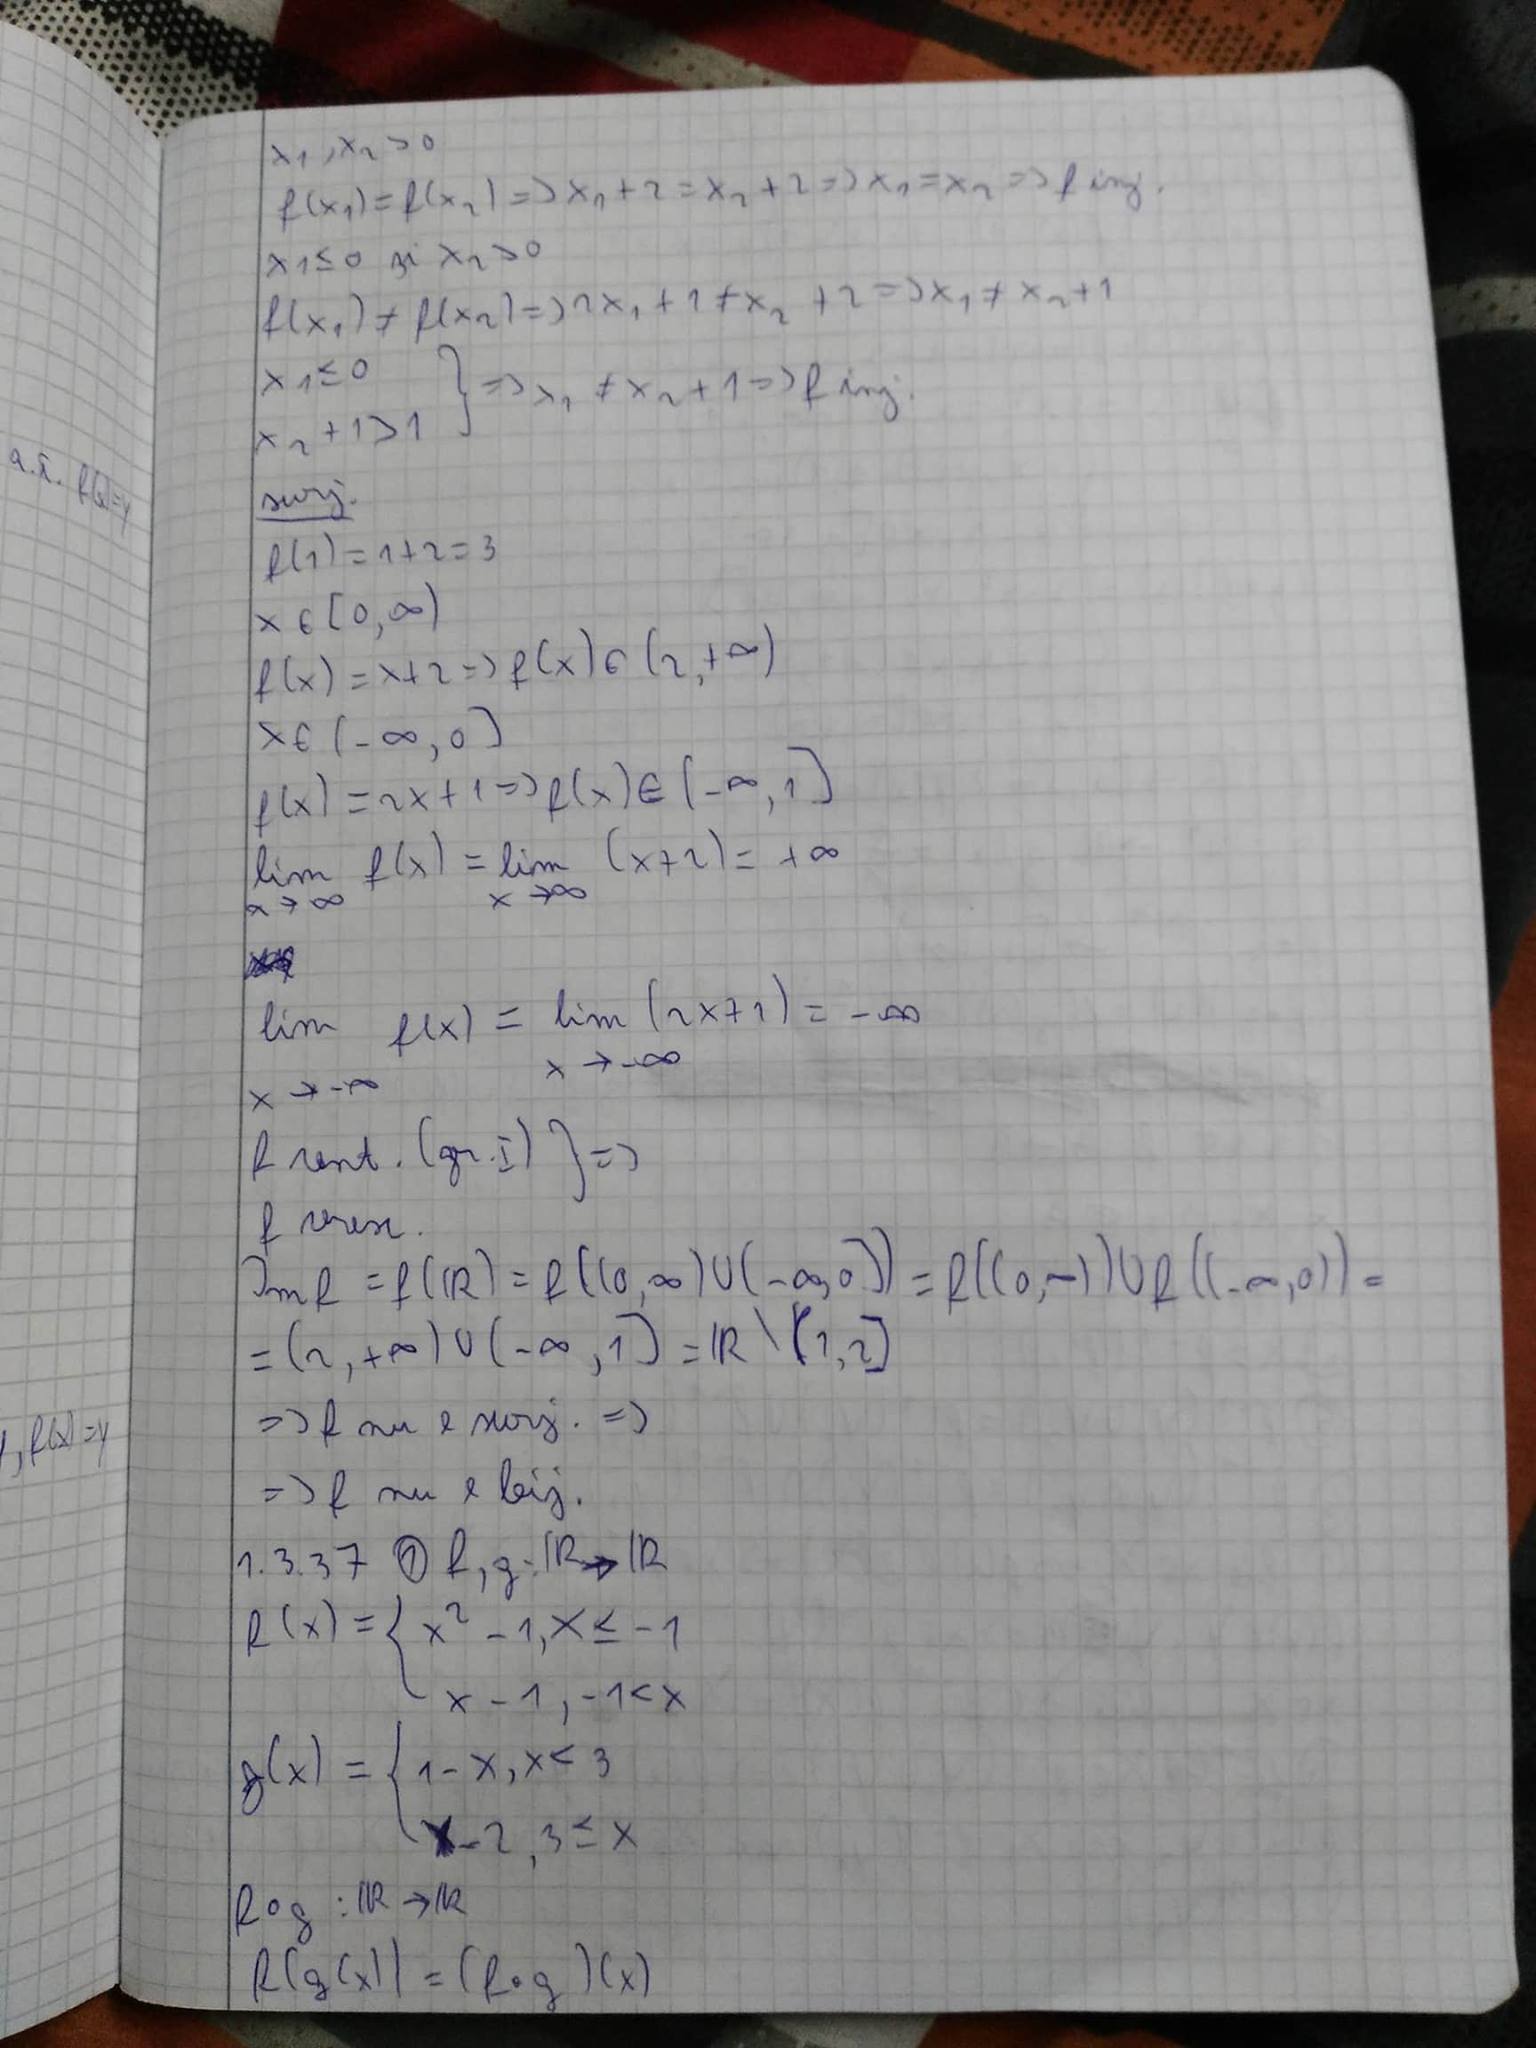 x₁, x₂ > 0
f(x₁) = f(x₂) => x₁ + 2 = x₂ + 2 => x₁ = x₂ => f inj.
x₁ ≤ 0 și x₂ > 0
f(x₁) ≠ f(x₂) => 2x₁ + 1 ≠ x₂ + 2 => x₁ ≠ x₂ + 1
x₁ ≤ 0
x₂ + 1 > 1 } => x₁ ≠ x₂ + 1 => f inj.
a.î. f(x)=y
surj.
f(1) = 1 + 2 = 3
x ∈ [0, ∞)
f(x) = x + 2 => f(x) ∈ (2, +∞)
x ∈ (-∞, 0]
f(x) = 2x + 1 => f(x) ∈ (-∞, 1]
lim f(x) = lim (x+2) = +∞
x → ∞ x → ∞
lim f(x) = lim (2x+1) = -∞
x → -∞ x → -∞
f cont. (gr. I) } =>
f cresc.
Im f = f(ℝ) = f((0, ∞) ∪ (-∞, 0]) = f((0, ∞)) ∪ f((-∞, 0)) =
= (2, +∞) ∪ (-∞, 1] = ℝ \ (1, 2]
=> f nu e surj. =>
, f(x)=y
=> f nu e bij.
1.3.37 ① f, g: ℝ → ℝ
f(x) = { x² - 1, x ≤ -1
x - 1, -1 < x
g(x) = { 1 - x, x < 3
x - 2, 3 ≤ x
f∘g : ℝ → ℝ
f(g(x)) = (f∘g)(x)